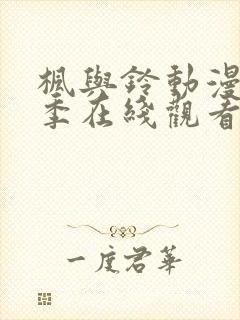 楓與鈴動漫
季在綫觀看
一度君華